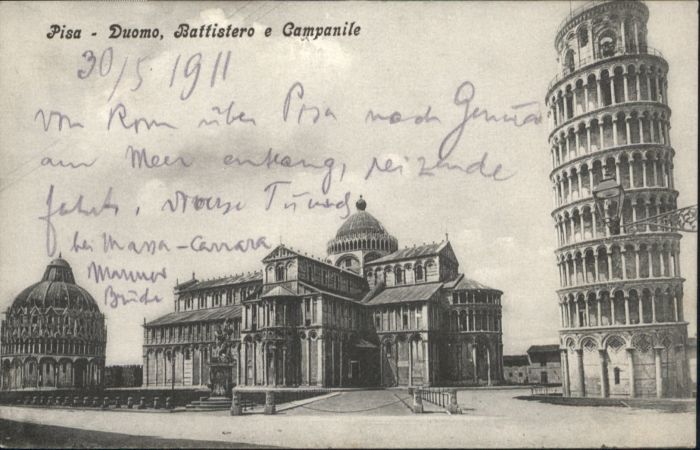 Pisa - Duomo, Battistero e Campanile
30/5 1911
von Rom über Pisa nach Genua
am Meer entlang, reizende
Fahrt,
bei Massa-Carrara
Marmor